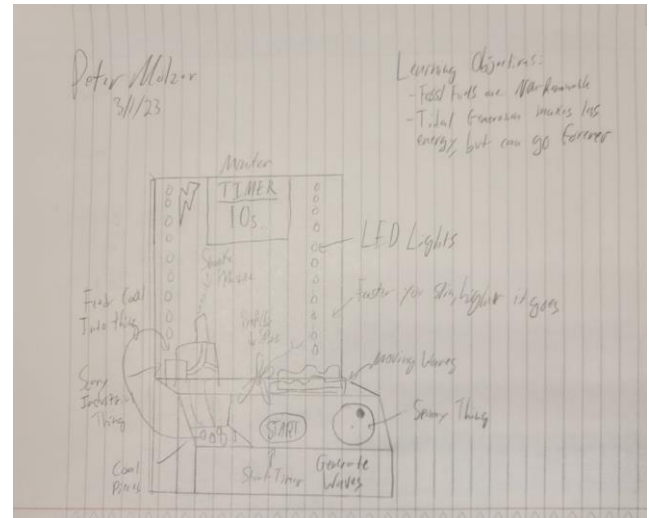 Peter Molzer
3/1/23
Learning Objectives:
- Fossil Fuels are Non-Renewable
- Tidal Generation makes less
energy, but can go forever
Monitor
TIMER
10s
LED Lights
Smoke
Feed Coal
Into thing
Faster you spin, higher it goes
Moving Waves
Industrial
Thing
Spinny Thing
START
Coal
Pieces
Start Timer
Generate
Waves